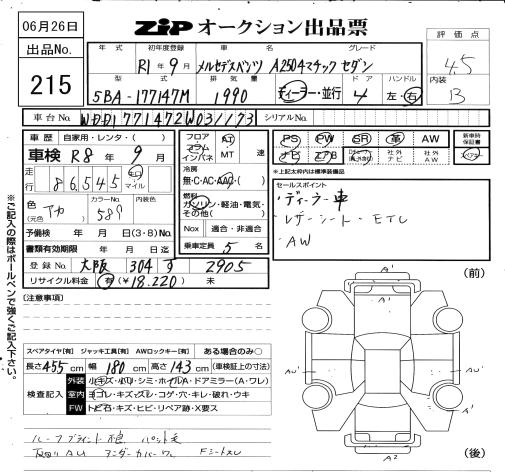 06月26日
ZIP オークション出品票
出品No.
215
評価点
4.5
内装
B
年式 初年度登録 車名 グレード
R1年9月 メルセデスベンツ A250 4マチック セダン
型式 排気量 ドア ハンドル
5BA-177147M 1990 ディーラー・並行 4 左・右
車台No. WDD1771472W031173 シリアルNo.
車歴 自家用・レンタ・( )
車検 R8年9月
走行 86,545 km マイル
色 (元色) アカ カラーNo. 589 内装色
予備検 年 月 日(3・8)No.
書類有効期限 年 月 日迄
登録No. 大阪 304 す 2905
リサイクル料金 有(¥18,220) 未
フロア コラム インパネ AT MT 速
冷房 無・C・AC・AAC・( )
燃料 ガソリン・軽油・電気・その他( )
Nox 適合・非適合
乗車定員 5 名
PS PW SR 革 AW
ナビ 社外ナビ 社外AW
新車時保証書
*上記太枠内は標準装備品
セールスポイント
・ディーラー車
・レザーシート・ETC
・AW
※ご記入の際はボールペンで強くご記入下さい。
(注意事項)
スペアタイヤ[有] ジャッキ工具[有] AWロックキー[有] ある場合のみ○
長さ455cm 幅180cm 高さ143cm (車検証上の寸法)
検査記入
外装 小キズ・小凹・シミ・ホイルA・ドアミラー(A・ワレ)
室内 ヨゴレ・キズ・スレ・コゲ・穴・キレ・破れ・ウキ
FW トビ石・キズ・ヒビ・リペア跡・X要ス
アンダーカバーワレ Fシートスレ
(前)
A1
AU1
AU1
A2
(後)